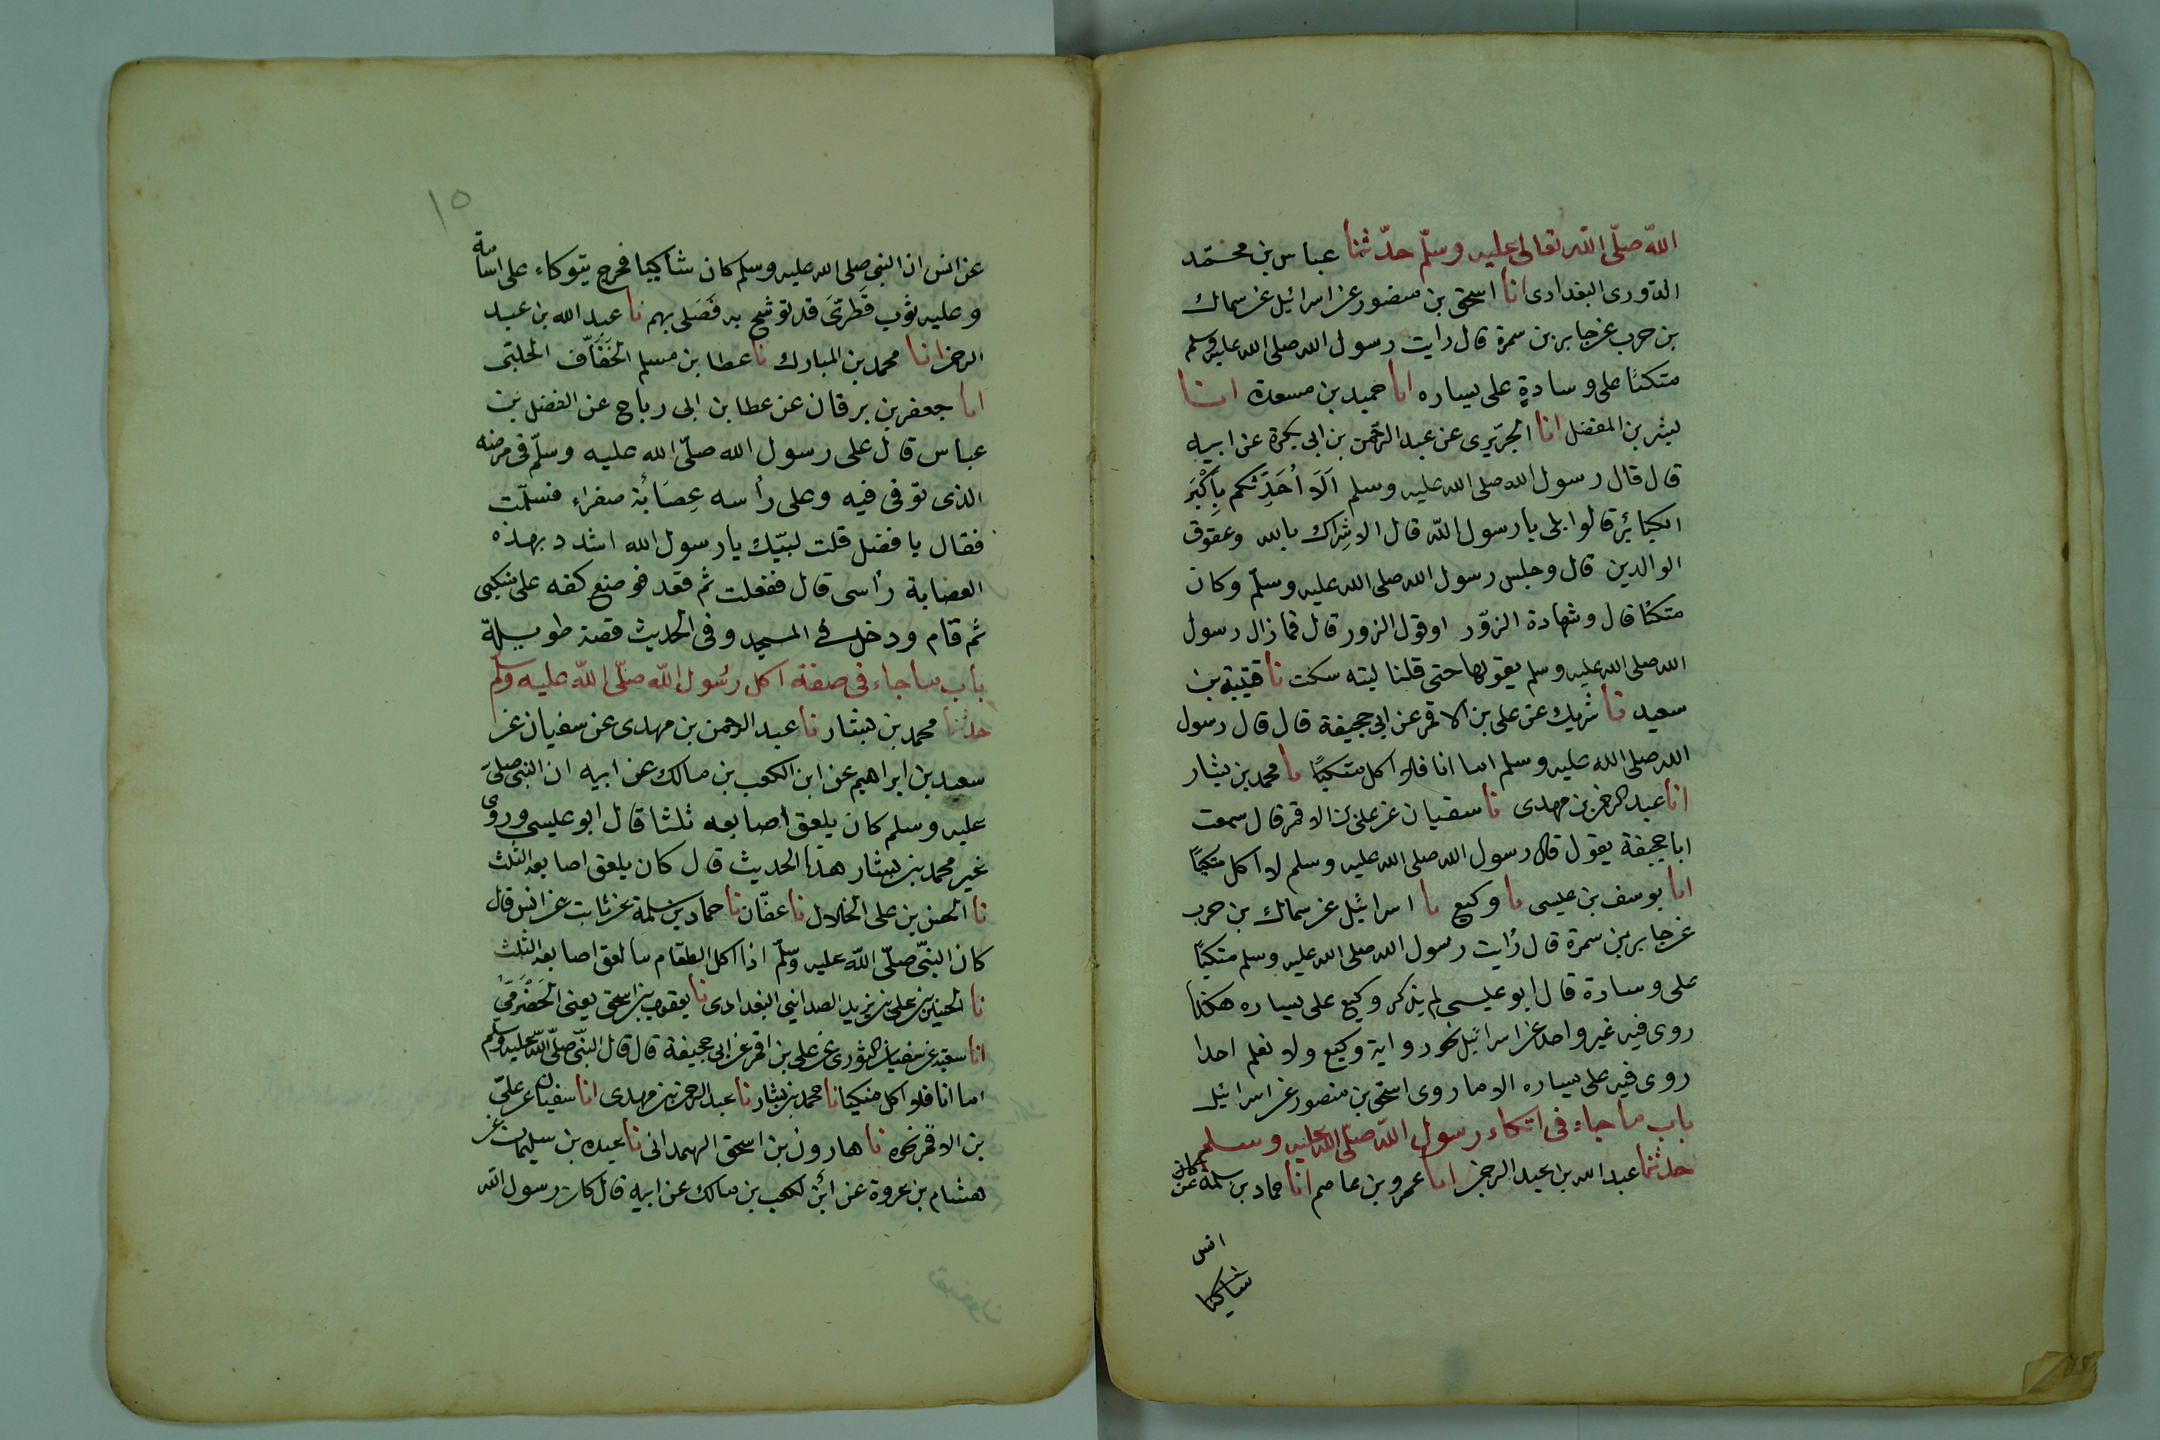 الله صلّى الله تعالى عليه وسلّم حدّثنا عباس بن محمّد
الدّورى البغدادى انا اسحٰق بن منصور عن اسرائيل عن سماك
بن حرب عن جابر بن سمرة قال رايت رسول الله صلى الله عليه وسلم
متكئًا على وسادةٍ على يساره انا حميد بن مسعدة انا
بشر بن المفضل انا الجرّيرى عن عبد الرحمن بن ابى بكرة عن ابيه
قال قال رسول الله صلى الله عليه وسلم اَلَا اُحَدِّثكم بِاَكْبَرِ
الكبائِر قالوا بلى يا رسول الله قال الاشِراك بالله وعقوق
الوالدين قال وجلس رسول الله صلى الله عليه وسلّم وكان
متكئا قال وشهادة الزوّر او قول الزور قال فما زال رسول
الله صلى الله عليه وسلم يقولها حتى قلنا ليته سكت نا قتيبة بن
سعيد نا شريك عن على بن الاقمر عن ابى جحيفة قال قال رسول
الله صلى الله عليه وسلم اما انا فلا اكل متكيًا نا محمد بن بشار
انا عبد الرحمن بن مهدى نا سفيان عن على بن الاقمر قال سمعت
ابا جحيفة يقول قال رسول الله صلى الله عليه وسلم لا اكل متكيًا
انا يوسف بن عيسى نا وكيع نا اسرائيل عن سماك بن حرب
عن جابر بن سمرة قال رايت رسول الله صلى الله عليه وسلم متكيًا
على وسادة قال ابو عيسى لم يذكر وكيع على يساره هكذا
روى فيه غير واحد عن اسرائيل نحو رواية وكيع ولا نعلم احدا
روى فيه على يساره الا ما روى اسحٰق بن منصور عن اسرائيل
باب ما جاء فى اتكاء رسول الله صلّى الله عليه وسلم
حدثنا عبد الله بن عبد الرحمن انا عمرو بن عاصم انا حماد بن سلمة عن
انس
شاكيا
١٥
عن انس ان النبى صلى الله عليه وسلم كان شاكيا فخرج يتوكاء على اسامة
وعليه ثوب قِطرىّ قد توشح به فَصَلى بهم نا عبد الله بن عبد
الرحمن انا محمد بن المبارك نا عطا بن مسلم الخَفّاف الحلبى
انا جعفر بن برقان عن عطا بن ابى رباح عن الفضل بن
عباس قال على رسول الله صلّى الله عليه وسلّم فى مرضه
الذى توفى فيه وعلى رأسه عِصَابة صفراء فسلّمت
فقال يا فضل قلت لبيّك يا رسول الله اشدد بهذه
العصابة رأسى قال ففعلت ثم قعد فوضع كفه على منكبى
ثم قام ودخل فى المسجد وفى الحديث قصة طويلة
باب ما جاء فى صفة اكل رسول الله صلّى الله عليه وسلّم
حدثنا محمد بن بشار نا عبد الرحمن بن مهدى عن سفيان عن
سعد بن ابراهيم عن ابن الكعب بن مالك عن ابيه ان النبى صلى
عليه وسلم كان يلعق اصابعه ثلثا قال ابو عيسى وروى
غير محمد بن بشار هذا الحديث قال كان يلعق اصابعه الثلث
نا الحسن بن على الخلال نا عفّان نا حماد بن سلمة عن ثابت عن انس قال
كان النبىّ صلّى الله عليه وسلّم اذا اكل الطعام ما لعق اصابعه الثلث
نا الحسين بن على بن يزيد الصدائى البغدادى نا يعقوب بن اسحٰق يعنى الحَضْرَمىّ
انا شعبة عن سفيان الثورى عن على بن اقمر عن ابى جحيفة قال قال النبىّ صلّى الله عليه وسلم
اما انا فلا اكل متكيا نا محمد بن بشار نا عبد الرحمن بن مهدى انا سفيان عن علىّ
بن الاقمر نحوه نا هارون بن اسحٰق الهمدانى نا عبده بن سليمان عن
هشام بن عروة عن ابن لكعب بن مالك عن ابيه قال كان رسول الله